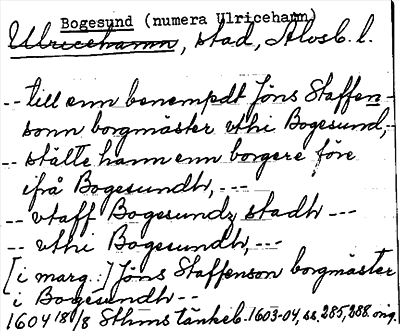 Bogesund (numera Ulricehamn)
Ulricehamn, stad, Älvsb. l.
-- till enn benempdt Jöns Staffen-
sonn borgmäster vthi Bogesund,--
-- stälte hann enn borgere före
ifrå Bogesundh, ---
-- vtaff Bogesundz stadh ---
-- vthi Bogesundh, ---
[i marg.:] Jöns Staffenson borgmäster
i Bogesundh --
1604 18/8 Sthms tänkeb. 1603-04, ss. 285, 288. orig.